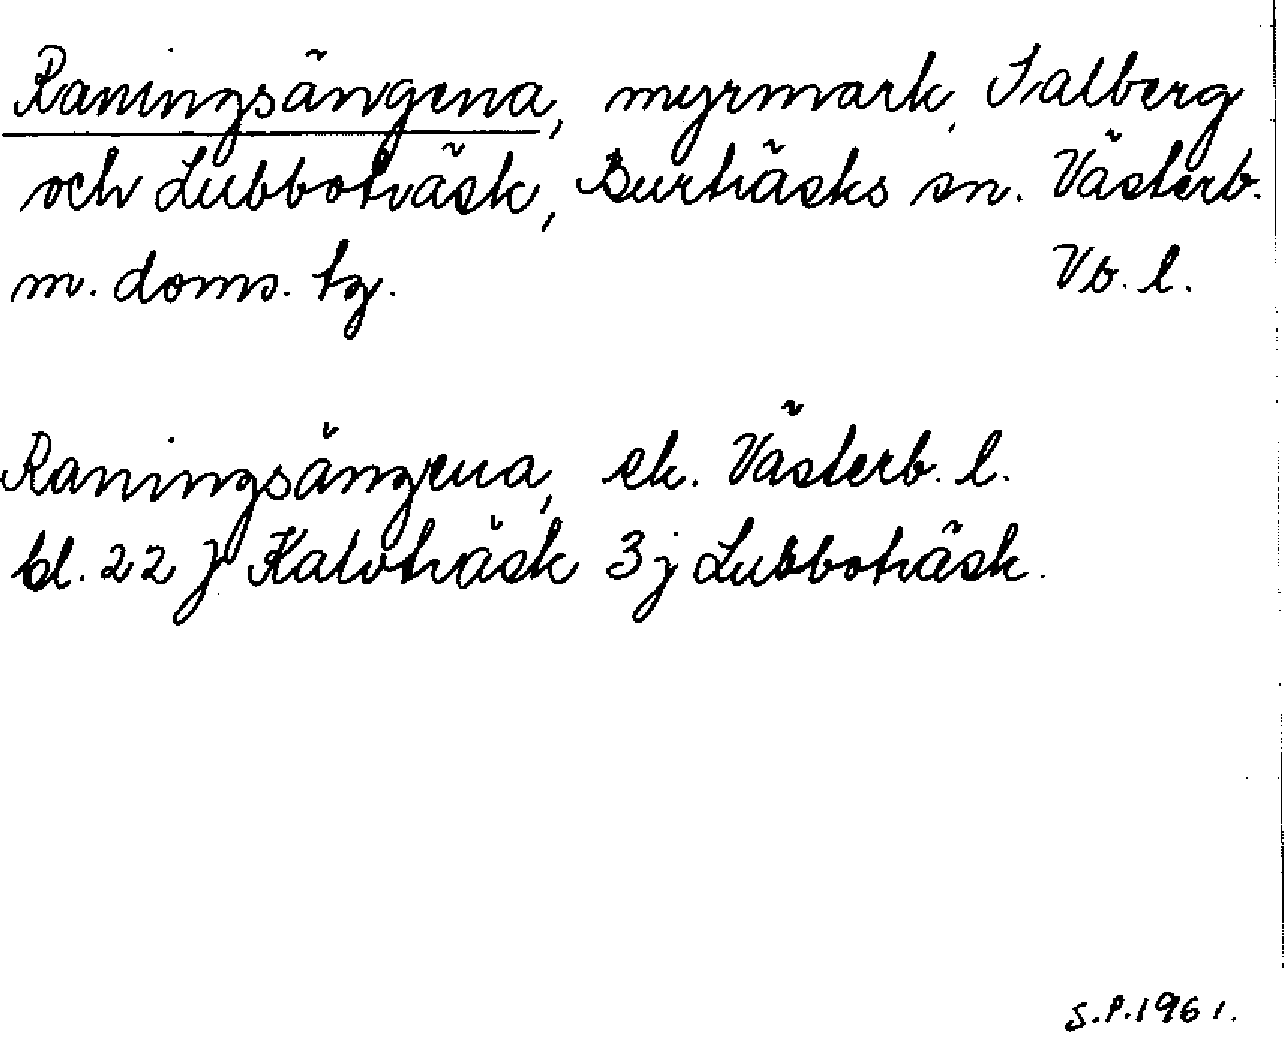 Raningsängena, myrmark, Salberg
och Lubboträsk, Burträsks sn. Västerb.
m. doms. tg. Vb. l.
Raningsängena, ek. Västerb. l.
bl. 22 J Kalvträsk 3 j Lubboträsk.
S.P. 1961.